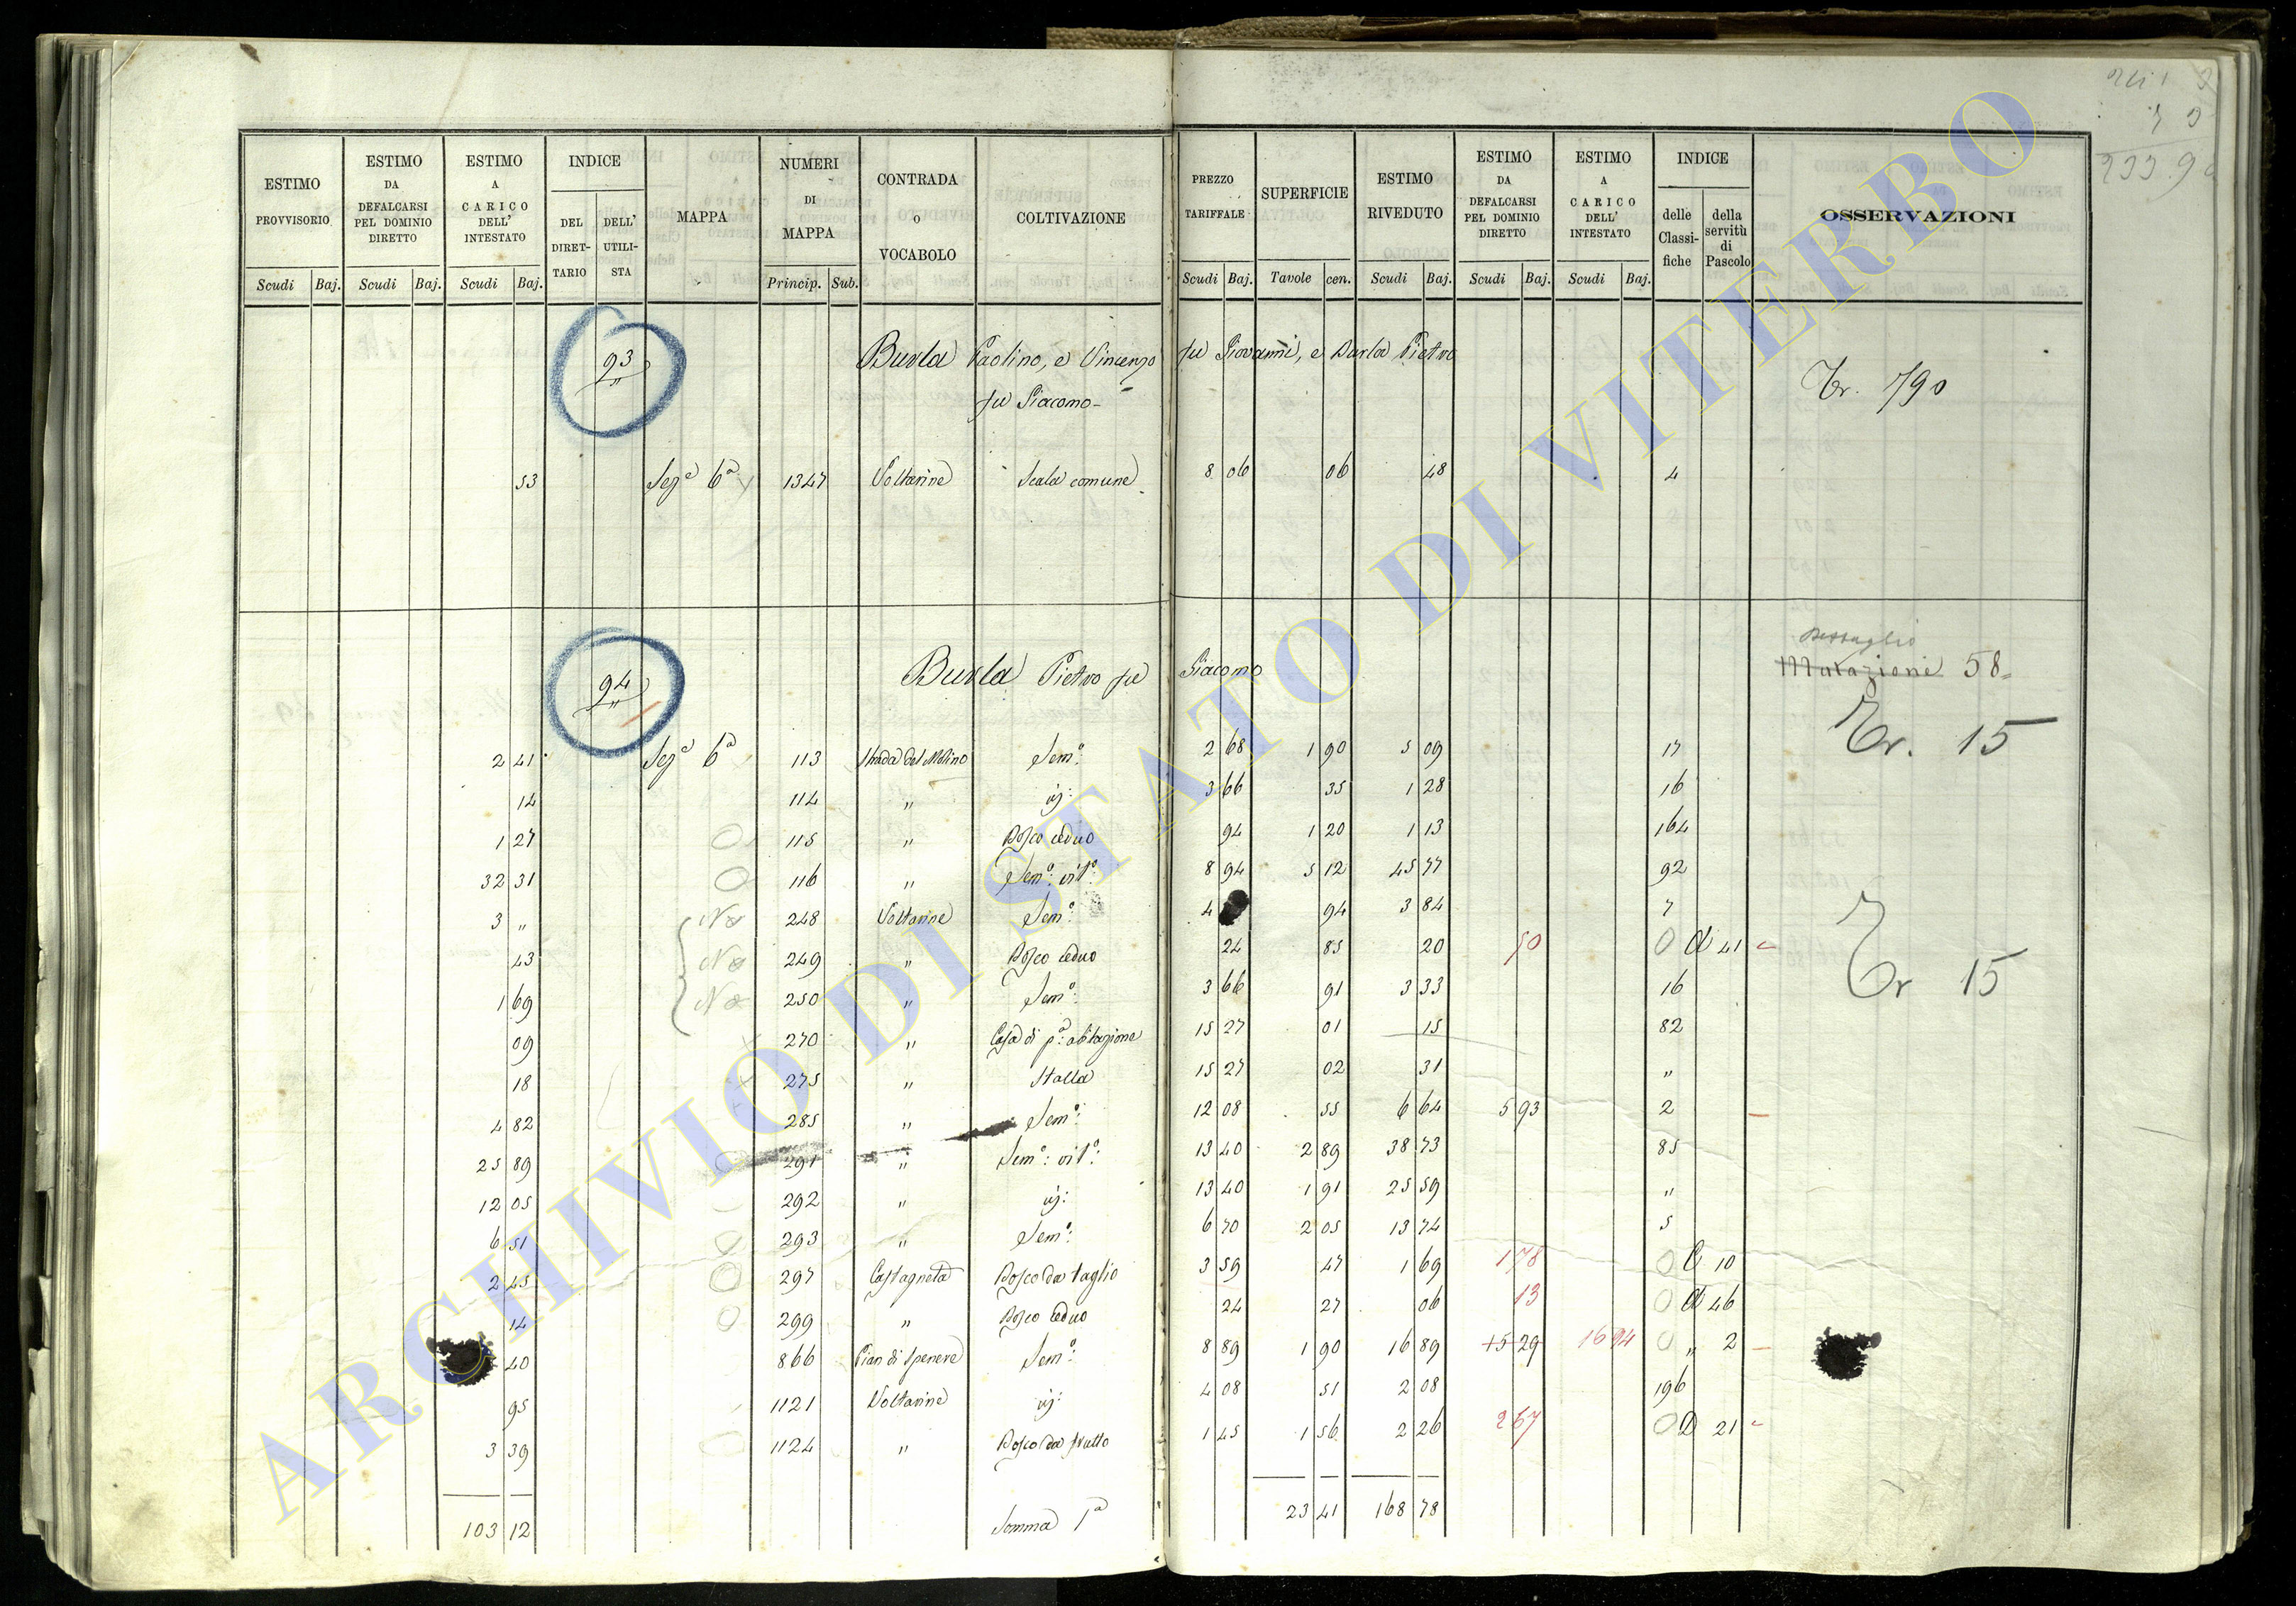 ESTIMO PROVVISORIO ESTIMO DA DEFALCARSI PEL DOMINIO DIRETTO ESTIMO A CARICO DELL' INTESTATO INDICE DEL DIRETTARIO DELL' UTILISTA MAPPA NUMERI DI MAPPA CONTRADA o VOCABOLO COLTIVAZIONE PREZZO TARIFFALE SUPERFICIE ESTIMO RIVEDUTO ESTIMO DA DEFALCARSI PEL DOMINIO DIRETTO ESTIMO A CARICO DELL' INTESTATO INDICE delle Classifiche della servitù di Pascolo OSSERVAZIONI
Scudi Baj. Scudi Baj. Scudi Baj. Princip. Sub. Scudi Baj. Tavole cen. Scudi Baj. Scudi Baj. Scudi Baj.
93 Burla Paolino, e Vincenzo fu Giovanni, e Burla Pietro
fu Giacomo Tr. 790
53 Sezᵉ 6ᵃ 1347 Voltarine Scala comune 8 06 06 48 4
Dettaglio
94 Burla Pietro fu Giacomo Mutazione 58
Tr. 15
2 41 Sezᵉ 6ᵃ 113 Strada del Molino Semᵒ: 2 68 1 90 5 09 17
14 114 " id: 3 66 35 1 28 16
1 27 115 " Bosco ceduo 94 1 20 1 13 164
32 31 116 " Semᵒ: vitᵒ: 8 94 5 12 45 77 92
3 " No 248 Voltarine Semᵒ: 4 94 3 84 7
43 No 249 " Bosco ceduo 24 85 20 50 0 A 41
1 69 No 250 " Semᵒ: 3 66 91 3 33 16 Tr 15
09 270 " Casa di pᵃ: abitazione 15 27 01 15 82
18 275 " Stalla 15 27 02 31 "
4 82 285 " Semᵒ: 12 08 55 6 64 5 93 2
25 89 291 " Semᵒ: vitᵒ: 13 40 2 89 38 73 85
12 05 292 " id: 13 40 1 91 25 59 "
6 51 293 " Semᵒ: 6 70 2 05 13 74 5
2 45 297 Castagneta Bosco da taglio 3 59 47 1 69 178 0 C 10
14 299 " Bosco ceduo 24 27 06 13 0 A 46
40 866 Pian di Speneve Semᵒ: 8 89 1 90 16 89 +5 29 16 94 0 " 2
95 1121 Voltarine id: 4 08 51 2 08 196
3 39 1124 " Bosco da frutto 1 45 1 56 2 26 267 0 D 21
103 12 Somma 1ᵃ 23 41 168 78
ARCHIVIO DI STATO DI VITERBO